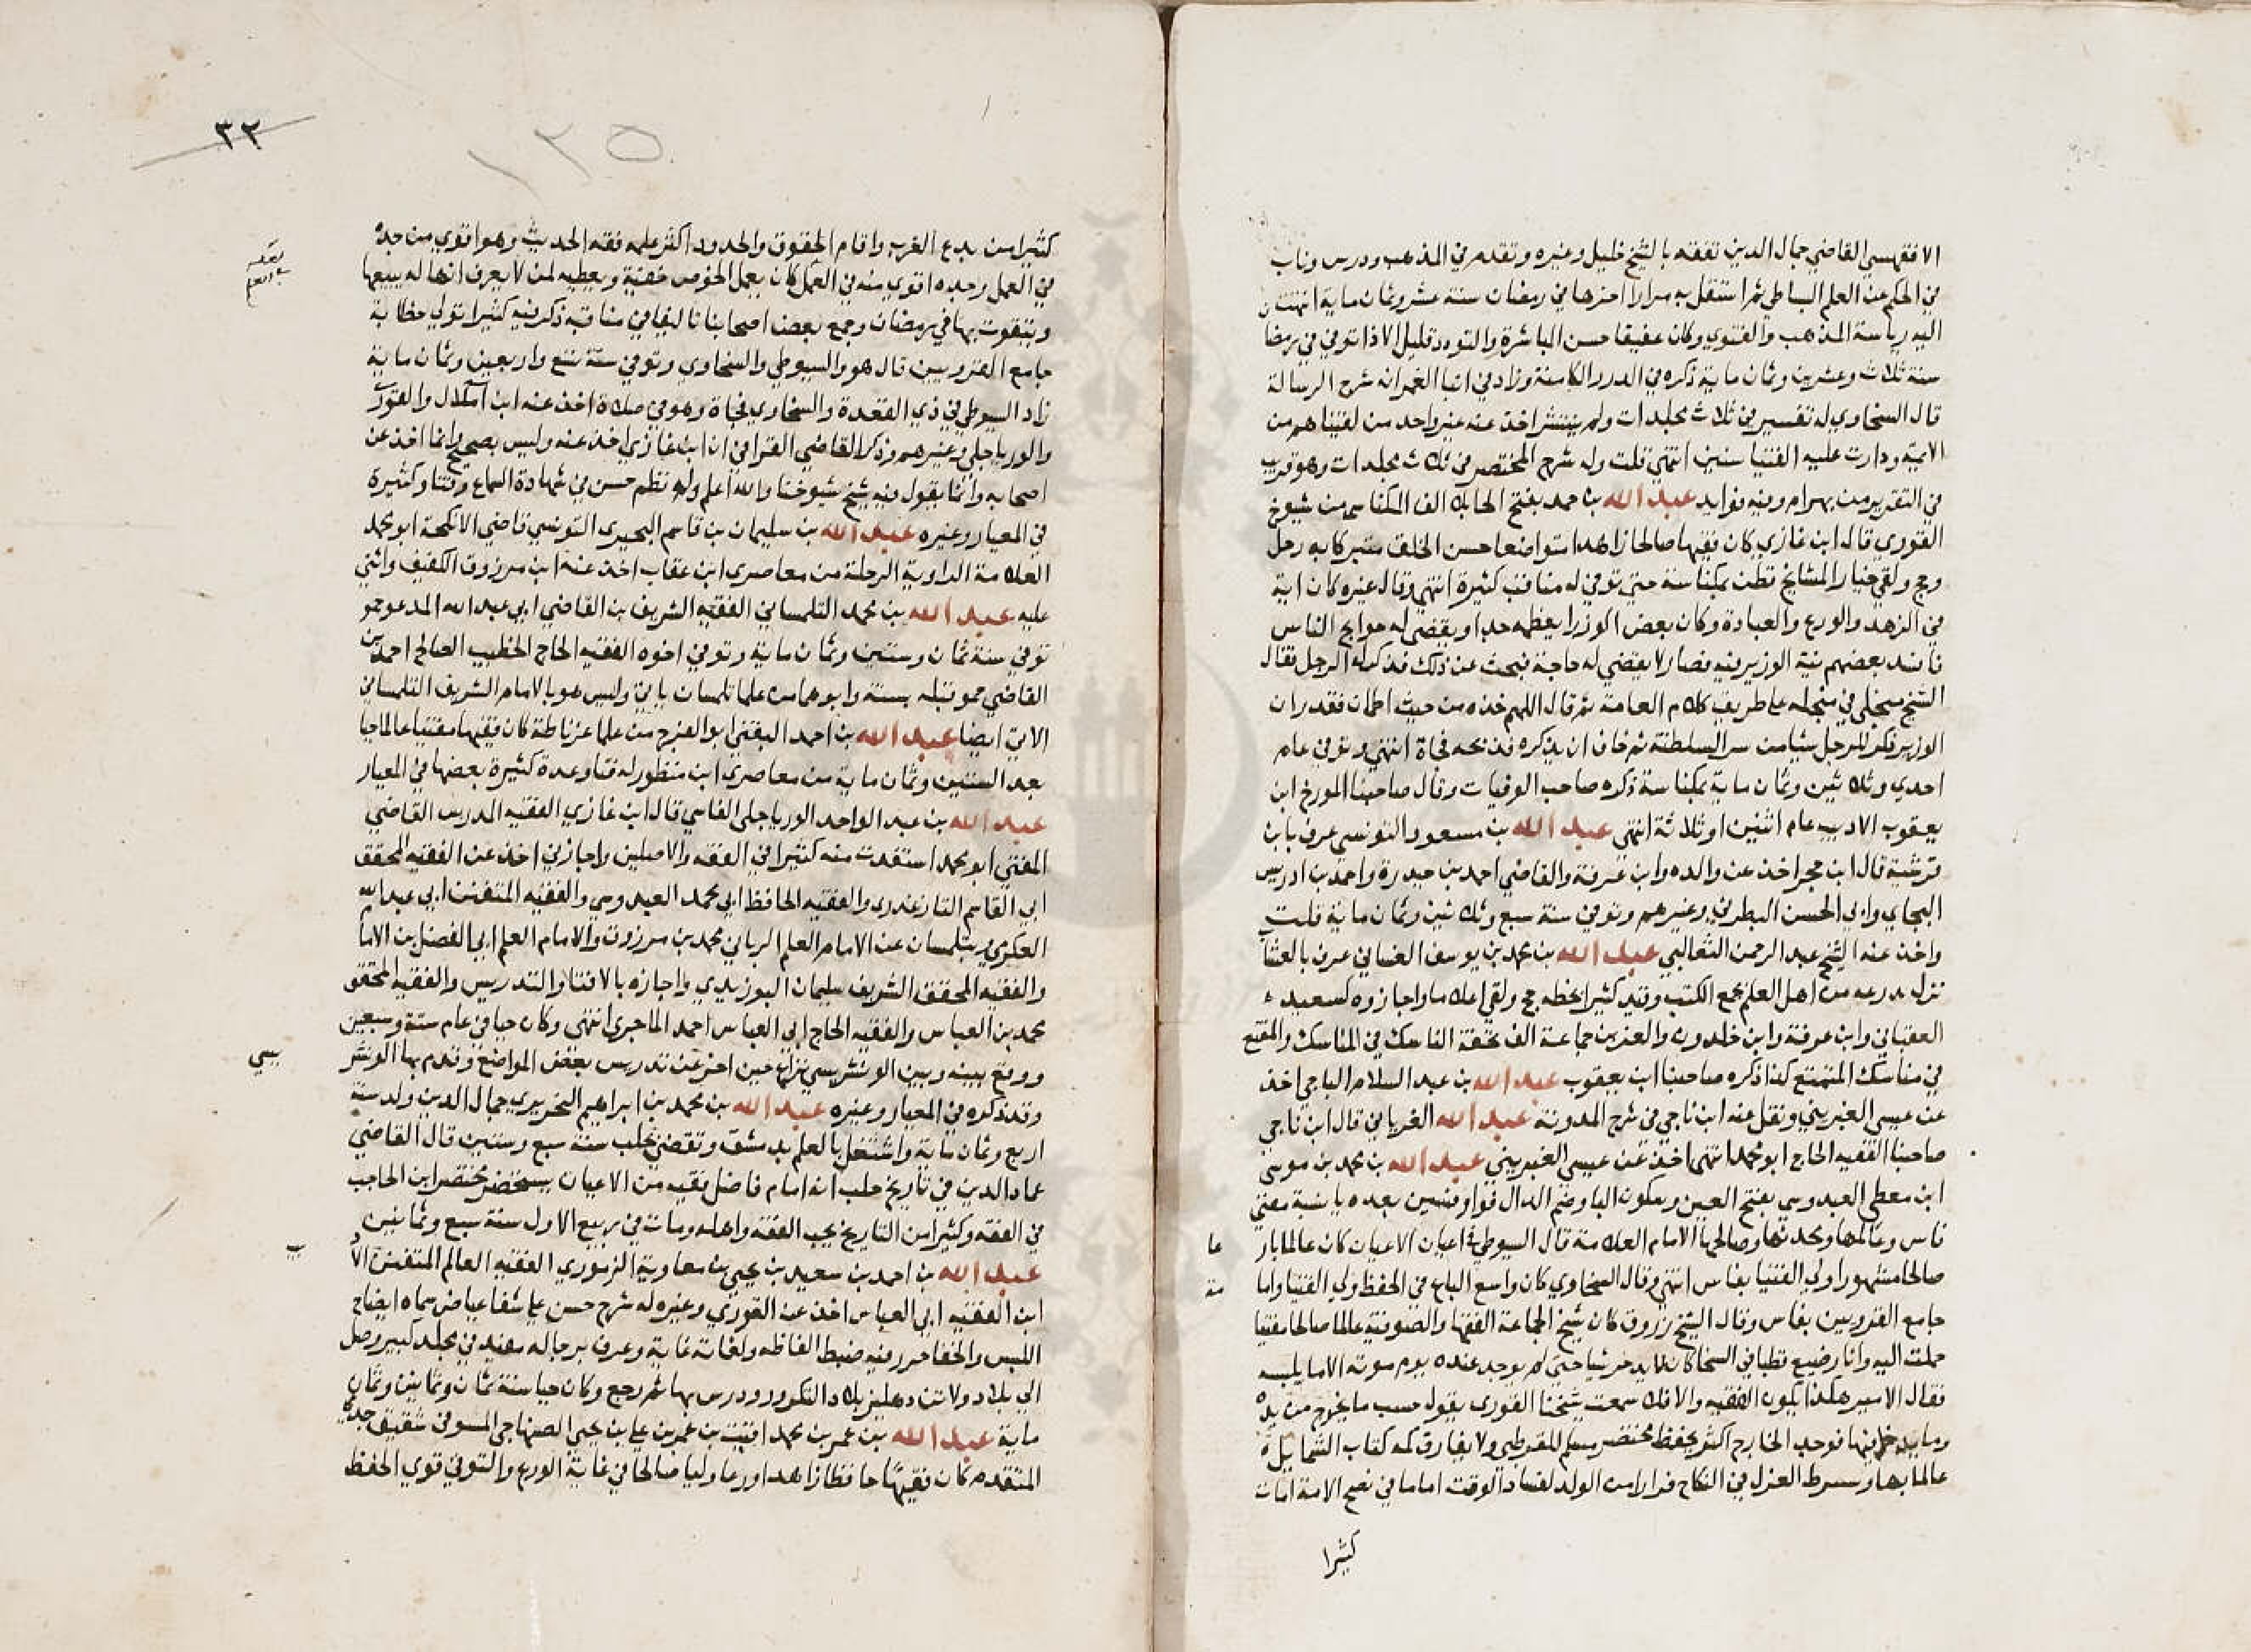 الاقفهسي القاضي جمال الدين تفقه بالشيخ خليل وغيره وتقدم في المذهب ودرس وناب
في الحكم عن العلم البساطي ثم استقل به مرارا اخرها في رمضان سنة عشر وثمان ماية انتهت
اليه رياسة المذهب والفتوي وكان عفيفا حسن المباشرة والتودد قليل الاذا توفي في رمضا
سنة ثلاث وعشرين وثمان ماية ذكره في الدرر الكامنة وزاد في انبا الغمر انه شرح الرسالة
قال السخاوي له تفسير في ثلاث مجلدات ولم ينتشر اخذ عنه غير واحد من لقيناهم من
الايمة ودارت عليه الفتيا سنين انتهي قلت وله شرح المختصر في ثلاث مجلدات وهو قريب
في التقرير من بهرام وفيه فوايد عبد الله بن حمد بفتح الحا بلا الف المكناسي من شيوخ
القوري قال ابن غازي كان فقيها صالحا زاهدا متواضعا حسن الخلق متبركا به رحل
وحج ولقي خيار المشايخ قطن بمكناسة حتي توفي له مناقب كثيرة انتهي وقال غيره كان اية
في الزهد والورع والعبادة وكان بعض الوزرا يعظمه جدا ويقضي له حوايج الناس
فافسد بعضهم نية الوزير فيه فصار لا يقضي له حاجة فبحث عن ذلك فذكر له الرجل فقال
الشيخ منجلي في منجله علي طريق كلام العامة ثم قال اللهم خذه من حيث اطمان فقدر ان
الوزير ذكر لرجل شيا من سر السلطنة ثم خاف ان يذكره فذبحه فجاة انتهي وتوفي عام
احدي وثلاثين وثمان ماية بمكناسة ذكره صاحب الوفيات وقال صاحبنا المورخ ابن
يعقوب الاديب عام اثنين او ثلاثة انتهي عبد الله بن مسعود التونسي عرف بابن
قرشية قال ابن حجر اخذ عن والده وابن عرفة والقاضي احمد بن حيدرة واحمد بن ادريس
البجاي وابي الحسن البطرني وغيرهم وتوفي سنة سبع وثلاثين وثمان ماية قلت
واخذ عنه الشيخ عبد الرحمن الثعالبي عبد الله بن محمد بن يوسف الغساني عرف بالعشا
نزل بدرعه من اهل العلم جمع الكتب وقيد كثيرا بخطه حج ولقي اعلاما واجازوه كسعيد
العقباني وابن عرفة وابن خلدون والعز بن جماعة الف تحفة الناسك في المناسك والمقنع
في مناسك المتمتع كذا ذكره صاحبنا ابن يعقوب عبد الله بن عبد السلام الباجي اخذ
عن عيسي الغبريني ونقل عنه ابن ناجي في شرح المدونة عبد الله الغرياني قال ابن ناجي
صاحبنا الفقيه الحاج ابو محمد انتهي اخذ عن عيسي الغبريني عبد الله بن محمد بن موسي
ابن معطي العبدوسي بفتح العين وسكون البا وضم الدال فواو فسين بعده يا نسبة مفتي
فاس وعالمها ومحدثها وصالحها الامام العلامة قال السيوطي في اعيان الاعيان كان عالما بار
صالحا مشهورا ولي الفتيا بفاس انتهي وقال السخاوي كان واسع الباع في الحفظ ولي الفتيا واما
جامع القرويين بفاس وقال الشيخ زروق كان شيخ الجماعة الفقها والصوفية عالما صالحا مفتيا
حملت اليه وانا رضيع قطبا في السخا كان لا يدخر شيا حتي لم يوجد عنده يوم موته الا ما يلبسه
فقال الامير هكذا يكون الفقيه والا فلا سمعت شيخنا القوري يقول حسب ما يخرج من يده
وما يدخلها فوجد الخارج اكثر يحفظ مختصر مسلم للقرطبي ولا يفارق كمه كتاب الشمايل
عالما بها وشرط العزل في النكاح فرارا من الولد لفساد الوقت اماما في نصح الامة امات
كثيرا
٣٢
١٢٥
كثيرا من بدع الغرب واقام الحقوق والحدود اكثر علمه فقه الحديث وهو اقوي من جده
في العمل وجده اقوي منه في العمل كان يعمل الخوص خفية ويعطيه لمن لا يعرف انها له يبيعها
ويتقوت بها في رمضان وجمع بعض اصحابنا تاليفا في مناقبه ذكر فيه كثيرا تولي خطابة
جامع القرويين قال هو والسيوطي والسخاوي وتوفي سنة تسع واربعين وثمان ماية
زاد السيوطي في ذي القعدة والسخاوي فجاة وهو في صلاة اخذ عنه ابن املال والقوري
والورياجلي وغيرهم وذكر القاضي القرافي ان ابن غازي اخذ عنه وليس بصحيح وانما اخذ عن
اصحابه وانما يقول فيه شيخ شيوخنا والله اعلم وله نظم حسن في شهادة السماع وفتاو كثيرة
في المعيار وغيره عبد الله بن سليمان بن قاسم البحيري التونسي قاضي الانكحة ابو محمد
العلامة الراوية الرحلة من معاصري ابن عقاب اخذ عنه ابن مرزوق الكفيف واثني
عليه عبد الله بن محمد التلمساني الفقيه الشريف بن القاضي ابي عبد الله المدعو حمو
توفي سنة ثمان وستين وثمان ماية وتوفي اخوه الفقيه الحاج الخطيب الصالح احمد بن
القاضي حمو قبله بسنة وابوهما من علما تلمسان ياتي وليس هو بالامام الشريف التلمساني
الاتي ايضا عبد الله بن احمد البقني ابو الفرج من علما غرناطة كان فقيها مفتيا عالما حيا
بعد الستين وثمان ماية من معاصري ابن منظور له فتاو عدة كثيرة بعضها في المعيار
عبد الله بن عبد الواحد الورياجلي الفاسي قال ابن غازي الفقيه المدرس القاضي
المفتي ابو محمد استفدت منه كثيرا في الفقه والاصلين واجازني اخذ عن الفقيه المحقق
ابي القاسم التازغدري والفقيه الحافظ ابي محمد العبدوسي والفقيه المتفنن ابي عبد الله
العكرمي وبتلمسان عن الامام العلم الرباني محمد بن مرزوق والامام العلم ابي الفضل بن الاما
والفقيه المحقق الشريف سليمان البوزيدي واجازه بالافتا والتدريس والفقيه المحقق
محمد بن العباس والفقيه الحاج ابي العباس احمد الماجري انتهي وكان حيا في عام ستة وسبعين
ووقع بينه وبين الونشريسي نزاع حين اخر عن تدريس بعض المواضع وقدم بها الونشر
وقد ذكره في المعيار وغيره عبد الله بن محمد بن ابراهيم النحريري جمال الدين ولد سنة
اربع وثمان ماية واشتغل بالعلم بدمشق وتقضي بحلب سنة سبع وستين قال القاضي
عماد الدين في تاريخ حلب انه امام فاضل فقيه من الاعيان يستحضر مختصر ابن الحاجب
في الفقه وكثيرا من التاريخ يحب الفقه واهله ومات في ربيع الاول سنة سبع وثمانين
عبد الله بن احمد بن سعيد بن يحيي بن معاوية الزموري الفقيه العالم المتفنن
ابن الفقيه ابي العباس اخذ عن القوري وغيره له شرح حسن علي شفا عياض سماه ايضاح
اللبس والخفا حرر فيه ضبط الفاظه ولغاته غاية وعرف برجاله مفيد في مجلد كبير وصل
الي بلاد ولاتن دهليز بلاد التكرور ودرس بها ثم رجع وكان حيا سنة ثمان وثمانين وثمان
ماية عبد الله بن عمر بن محمد اقيت بن عمر بن علي بن يحيي الصنهاجي المسوفي شقيق جدي
المتقدم كان فقيها حافظا زاهدا ورعا وليا صالحا في غاية الورع والتوقي قوي الحفظ